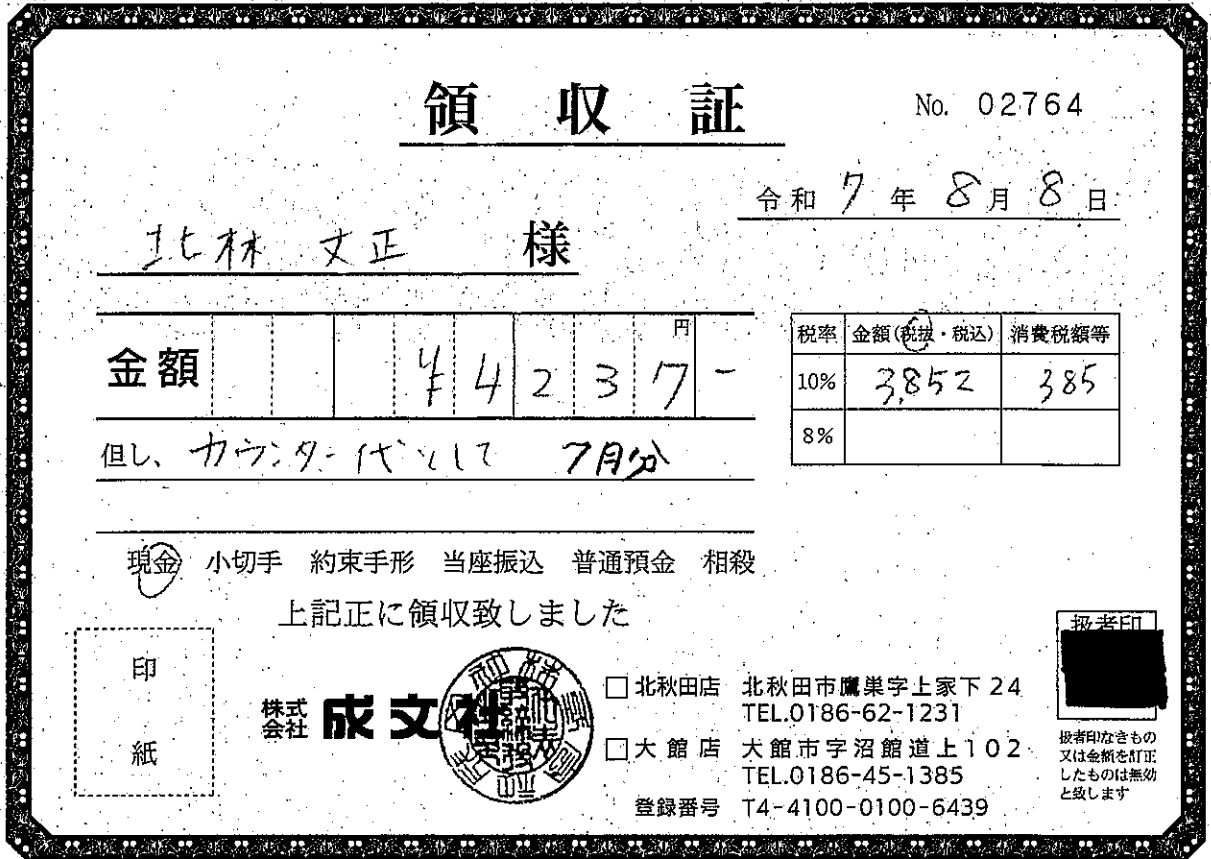 領収証
No. 02764
令和 7 年 8 月 8 日
北林 丈正 様
金額 ¥4237- 円
税率 金額(税抜・税込) 消費税額等
10% 3,852 385
8%
但し、カウンター代として 7月分
現金 小切手 約束手形 当座振込 普通預金 相殺
上記正に領収致しました
印紙
株式会社 成文社
□北秋田店 北秋田市鷹巣字上家下24
TEL.0186-62-1231
□大館店 大館市字沼館道上102
TEL.0186-45-1385
登録番号 T4-4100-0100-6439
扱者印
扱者印なきもの
又は金額を訂正
したものは無効
と致します